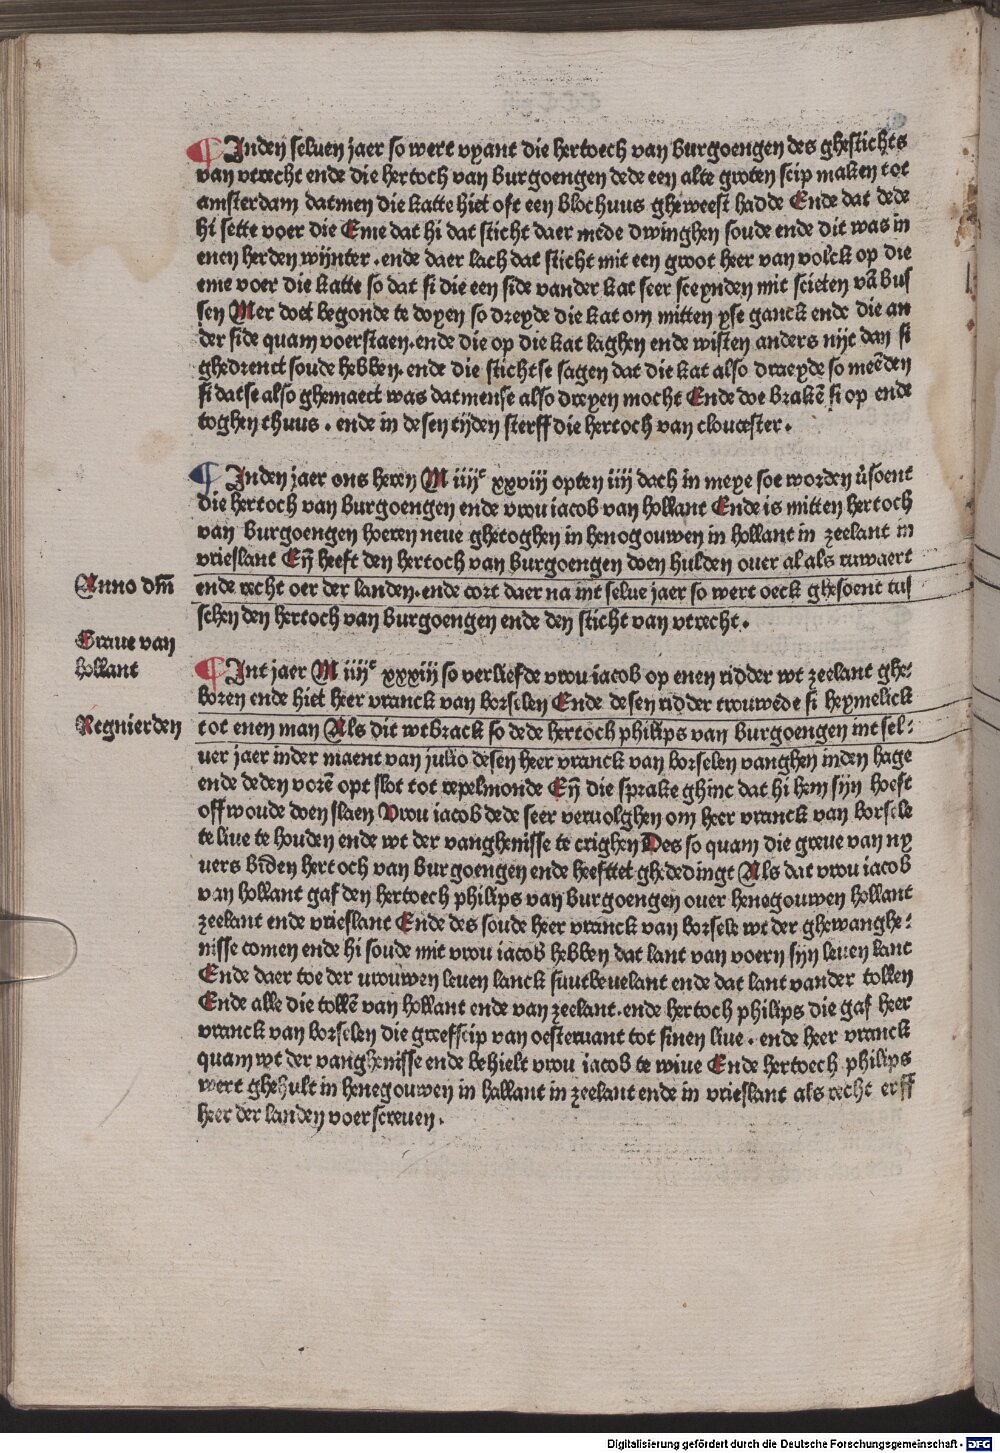 ¶ Inden seluen jaer so wert vyant die hertoech van Burgoengen des ghestichts
van vtrecht ende die hertoch van Burgoengen dede een alte groten scip maken tot
amsterdam datmen die katte hiet oft een blochuus gheweest hadde Ende dat dede
hi sette voer die Eme dat hi dat sticht daer mede dwinghen soude ende dit was in
enen herden wijnter. ende daer lach dat sticht mit een groot heer van volck op die
eme voer die katte so dat si die een side vander kat seer sceynden mit scieten vā bus
sen Mer doet begonde te doyen so dreyde die kat om mitten yse ganck ende die an
der side quam voerstaen. ende die op die kat laghen ende wisten anders nijt dan si
ghedrenct soude hebben. ende die stichtse sagen dat die kat also draeyde so meēden
si datse also ghemaect was datmense also dreyen mocht Ende doe brakē si op ende
toghen thuus. ende in desen tijden sterff die hertoch van cloucester.
¶ Inden jaer ons heren M iiijᶜ xxviij opten iiij dach in meye soe worden v̄soent
die hertoch van Burgoengen ende vrou iacob van hollant Ende is mitten hertoch
van Burgoengen hoeren neue ghetoghen in henogouwen in hollant in zeelant in
vrieslant Eñ heeft den hertoch van Burgoengen doen hulden ouer al als ruwaert
Anno dm̄
ende recht oer der landen. ende cort daer na int selue jaer so wert oeck ghesoent tus
schen den hertoch van Burgoengen ende den sticht van vtrecht.
Graue van
hollant
¶ Int jaer M iiijᶜ xxxiij so verliefde vrou iacob op enen ridder wt zeelant ghe-
boren ende hiet heer vranck van borselen Ende desen ridder trouwede si heymelick
Regnierden
tot enen man Als dit wtbrack so dede hertoch philips van Burgoengen int sel-
uer jaer inder maent van julio desen heer vranck van borselen vanghen inden hage
ende deden vorē opt slot tot repelmonde Eñ die sprake ghinc dat hi hem sijn hoeft
off woude doen slaen Vrou iacob dede seer veruolghen om heer vranck van borsele
te liue te houden ende wt der vanghenisse te crighen Des so quam die greue van ny
uers bīden hertoch van Burgoengen ende heefttet ghededingt Als dat vrou iacob
van hollant gaf den hertoech philips van Burgoengen ouer henegouwen hollant
zeelant ende vrieslant Ende des soude heer vranck van borsele wt der ghewanghe-
nisse comen ende hi soude mit vrou iacob hebben dat lant van voern sijn leuen lanc
Ende daer toe der vrouwen leuen lanck suutbeuelant ende dat lant vander tollen
Ende alle die tollē van hollant ende van zeelant. ende hertoch philips die gaf heer
vranck van borselen die greefscip van oesteruant tot sinen liue. ende heer vranck
quam wt der vanghenisse ende behielt vrou iacob te wiue Ende hertoech philips
wert ghehult in henegouwen in hollant in zeelant ende in vrieslant als recht erff
heer der landen voerscreuen.
Digitalisierung gefördert durch die Deutsche Forschungsgemeinschaft - DFG